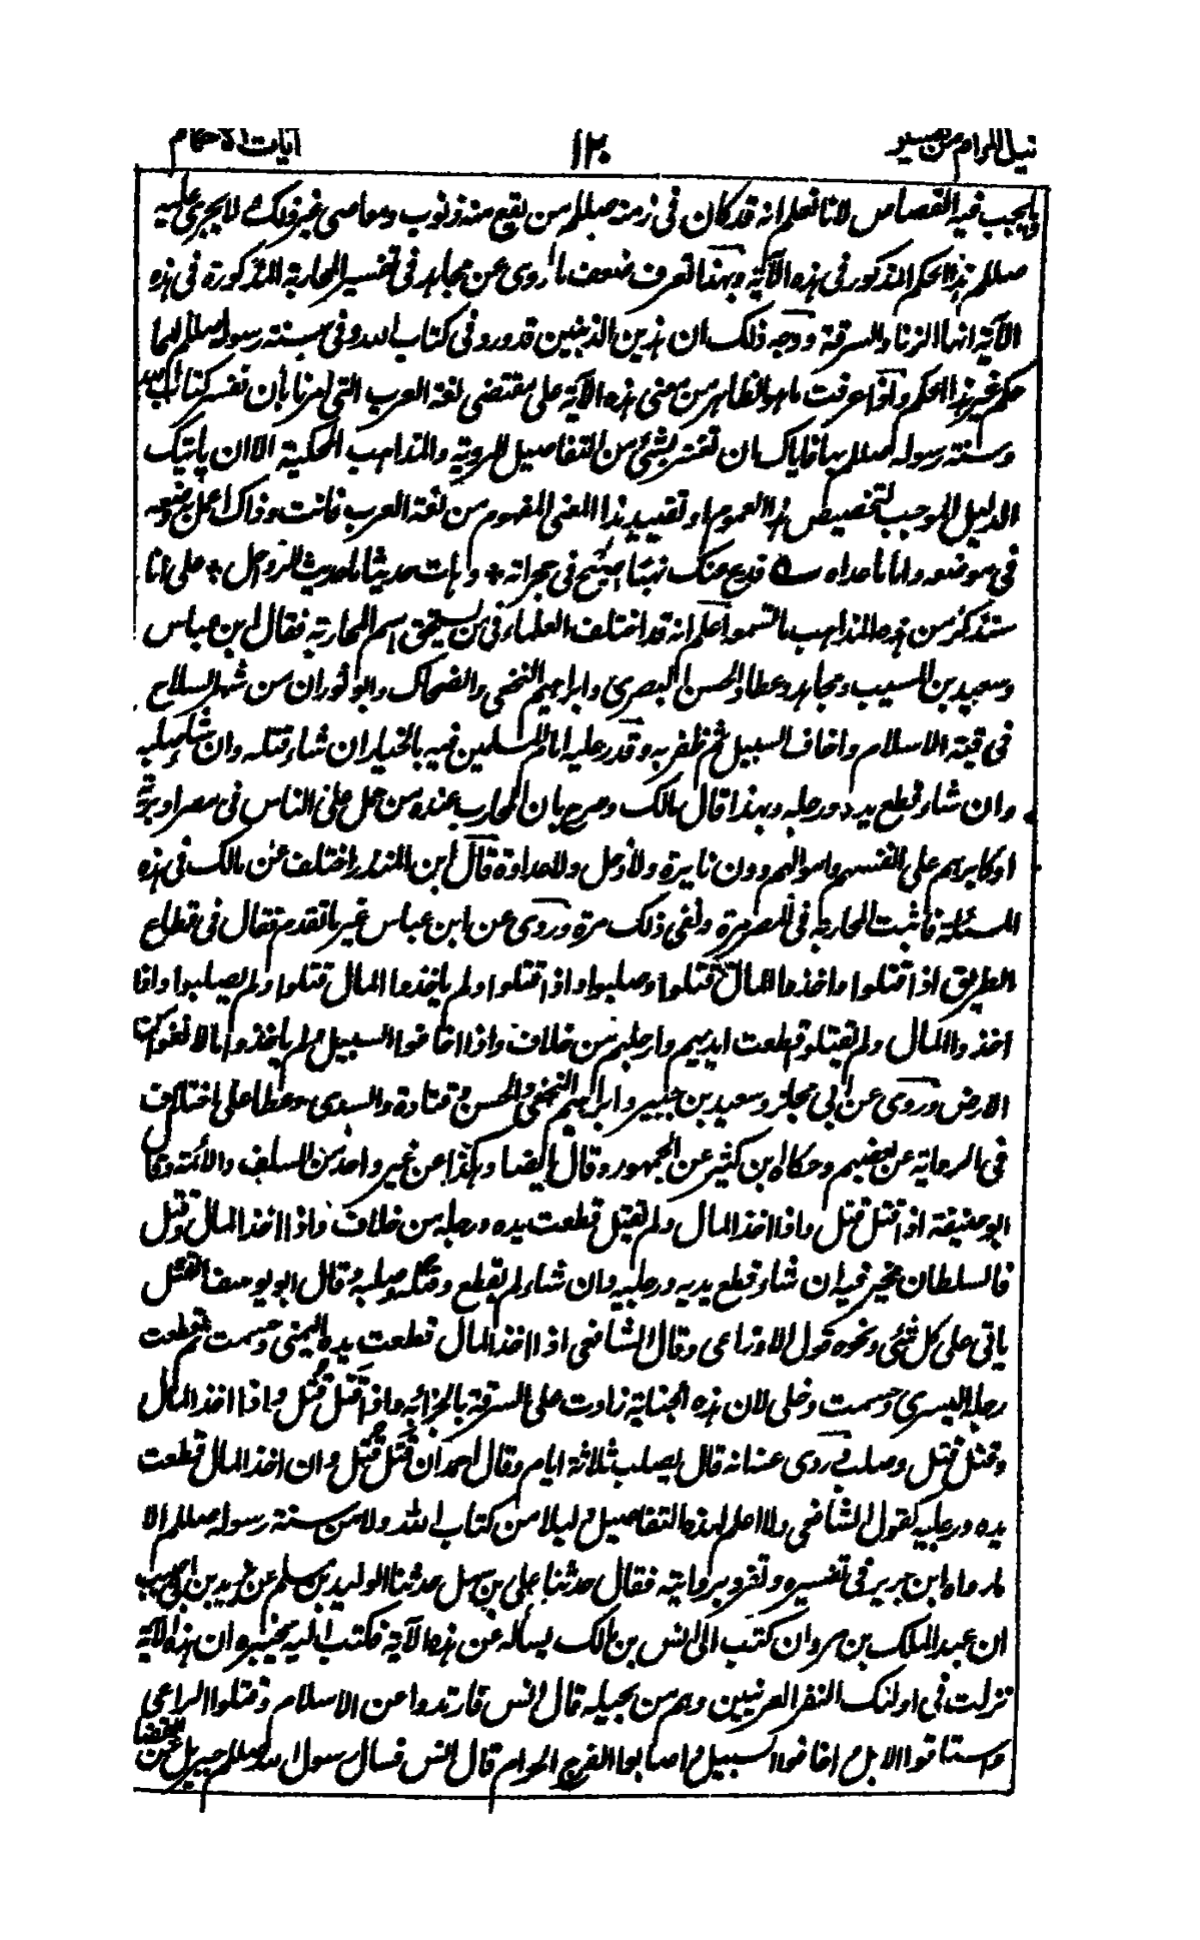 نيل المرام من تفسير ١٢٠ آيات الاحكام
ما يجب فيه القصاص لانا نعلم انه قد كان فى زمنه صللم من تقع منه ذنوب ومعاصى غير ذلك ولا يجرى عليه
صللم هذا الحكم المذكور فى هذه الآية وبهذا تعرف ضعف ما روى عن مجاهد فى تفسير المحاربة المذكورة فى هذه
الآية انها الزنا والسرقة ووجه ذلك ان هذين الذنبين قد ورد فى كتاب الله وفى سنة رسوله صللم لهما
حكم غير هذا الحكم واذا عرفت ما هو الظاهر من معنى هذه الآية على مقتضى لغة العرب التى امرنا بأن نفسر كتاب الله
وسنة رسوله صللم بها فاياك ان تغتر بشئ من التفاصيل المروية والمذاهب المحكية الا ان ياتيك
الدليل الموجب لتخصيص هذا العموم او تقييد هذا المعنى المفهوم من لغة العرب فانت وذاك اعمل به وضعه
فى موضعه واما ما عداه ــه فدع عنك نهبا صيح فى حجراته * وهات حديثا ما حديث الرواحل * على انا
سنذكر من هذه المذاهب ما تسمعه اعلم انه قد اختلف العلماء فى من يستحق اسم المحاربة فقال ابن عباس
وسعيد بن المسيب ومجاهد وعطاء والحسن البصرى وابراهيم النخعى والضحاك وابو ثور ان من شهر السلاح
فى قبة الاسلام واخاف السبيل ثم ظفر به وقدر عليه امام المسلمين فيه بالخيار ان شاء قتله وان شاء صلبه
وان شاء قطع يده ورجله وبهذا قال مالك وصرح بان المحارب عنده من حمل على الناس فى مصر او برية
او كابرهم على انفسهم واموالهم دون نايرة ولا ذحل ولا عداوة قال ابن المنذر اختلف عن مالك فى هذه
المسئلة فاثبت المحاربة فى المصر مرة ونفى ذلك مرة وروى عن ابن عباس غير ما تقدم فقال فى قطاع
الطريق اذا قتلوا واخذوا المال قتلوا وصلبوا واذا قتلوا ولم ياخذوا المال قتلوا ولم يصلبوا واذا
اخذوا المال ولم يقتلوا قطعت ايديهم وارجلهم من خلاف واذا اخافوا السبيل ولم ياخذوا مالا نفوا من
الارض وروى عن ابى مجلز وسعيد بن جبير وابراهيم النخعى والحسن وقتادة والسدى وعطا على اختلاف
فى الرواية عن بعضهم وحكاه ابن كثير عن الجمهور وقال ايضا وهكذا عن غير واحد من السلف والأئمة وقال
ابو حنيفة اذا قتل قتل واذا اخذ المال ولم يقتل قطعت يده ورجله من خلاف واذا اخذ المال وقتل
فالسلطان مخير فيه ان شاء قطع يديه ورجليه وان شاء لم يقطع وقتله وصلبه وقال ابو يوسف القتل
ياتى على كل شئ ونحوه قول الاوزاعى وقال الشافعى اذا اخذ المال قطعت يده اليمنى وحسمت ثم قطعت
رجله اليسرى وحسمت وخلى لان هذه الجناية زادت على السرقة بالحرابة واذا قَتَل قُتل واذا اخذ المال
وقتل قتل وصلب وروى عنه انه قال يصلب ثلاثة ايام وقال احمد ان قَتَل قُتل وان اخذ المال قطعت
يده ورجله كقول الشافعى ولا اعلم لهذه التفاصيل دليلا من كتاب الله ولا من سنة رسوله صللم الا
ما رواه ابن جرير فى تفسيره وتفرد بروايته فقال حدثنا على بن سهل حدثنا الوليد بن مسلم عن يزيد بن ابى حبيب
ان عبد الملك بن مروان كتب الى انس بن مالك يسأله عن هذه الآية فكتب اليه يخبره ان هذه الآية
نزلت فى اولئك النفر العرنيين وهم من بجيله قال انس فارتدوا عن الاسلام وقتلوا الراعى
واستاقوا الابل واخافوا السبيل واصابوا الفرج الحرام قال انس فسال رسول الله صللم جبريل عن القضا